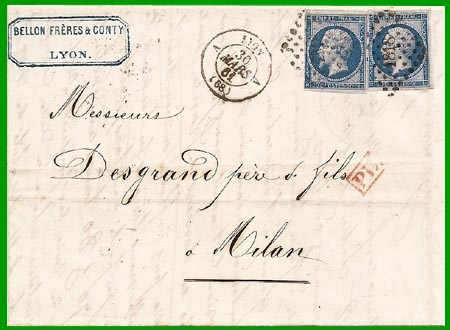 BELLON FRÈRES & CONTY
LYON.
A LYON A
30
MARS
61
(68)
EMPIRE FRANC.
Messieurs
Desgrand père & fils
à Milan
P.D.